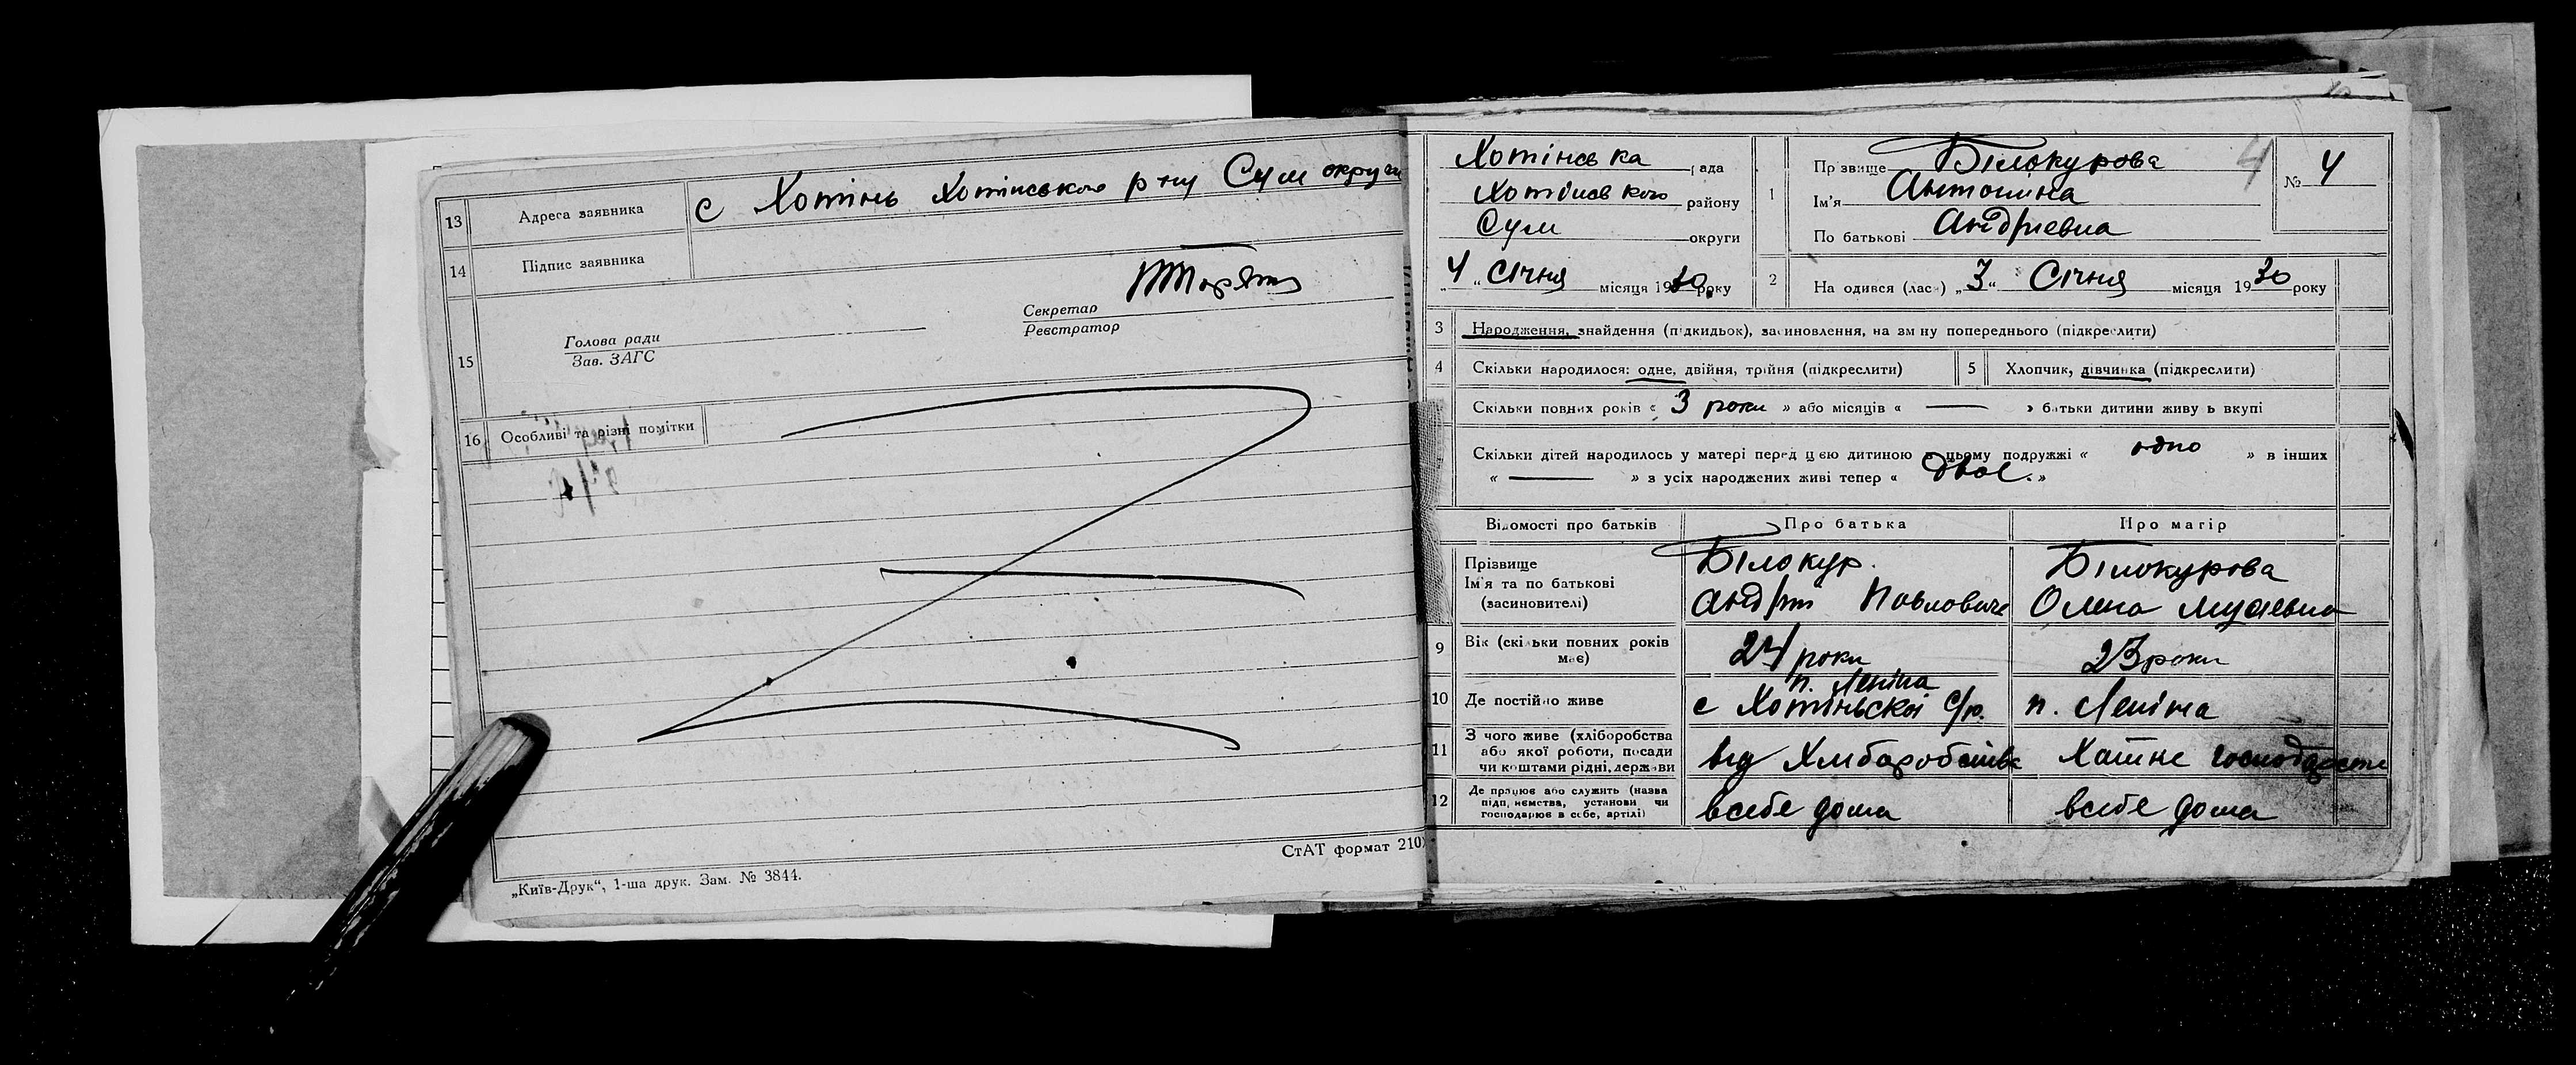 13 Адреса заявника с Хотінь Хотінського р-ну Сум округи
14 Підпис заявника
15 Голова ради
Зав. ЗАГС
Секретар
Реєстратор
16 Особливі та різні помітки
СтАТ формат 210
„Київ-Друк“, 1-ша друк. Зам. № 3844.
Хотінська рада
Хотінського району
Сум округи
4 „ Січня місяця 1930 року
1 Прізвище Білокурова
Ім'я Антоніна
По батькові Андріевна
4
№ 4
2 На одився (лась) „3“ Січня місяця 1930 року
3 Народження, знайдення (підкидьок), засиновлення, на зміну попереднього (підкреслити)
4 Скільки народилося: одне, двійня, трійня (підкреслити) 5 Хлопчик, дівчинка (підкреслити)
Скільки повних років « 3 роки » або місяців « — » батьки дитини живуть вкупі
Скільки дітей народилось у матері перед цією дитиною в цьому подружжі « одно » в інших
« — » з усіх народжених живі тепер « двое. »
Відомості про батьків Про батька Про матір
Прізвище
Ім'я та по батькові
(засиновителі)
Білокур.
Андрій Павлович
Білокурова
Олена Мусіевна
9 Вік (скільки повних років має) 24 роки 23 роки
10 Де постійно живе п. Леніна
с Хотінської с/р. п. Леніна
11 З чого живе (хліборобства
або якої роботи, посади
чи коштами рідні, держави
від Хліборобства Хатне господарство
12 Де працює або служить (назва
підприємства, установи чи
господарює в себе, артілі)
в себе дома в себе дома